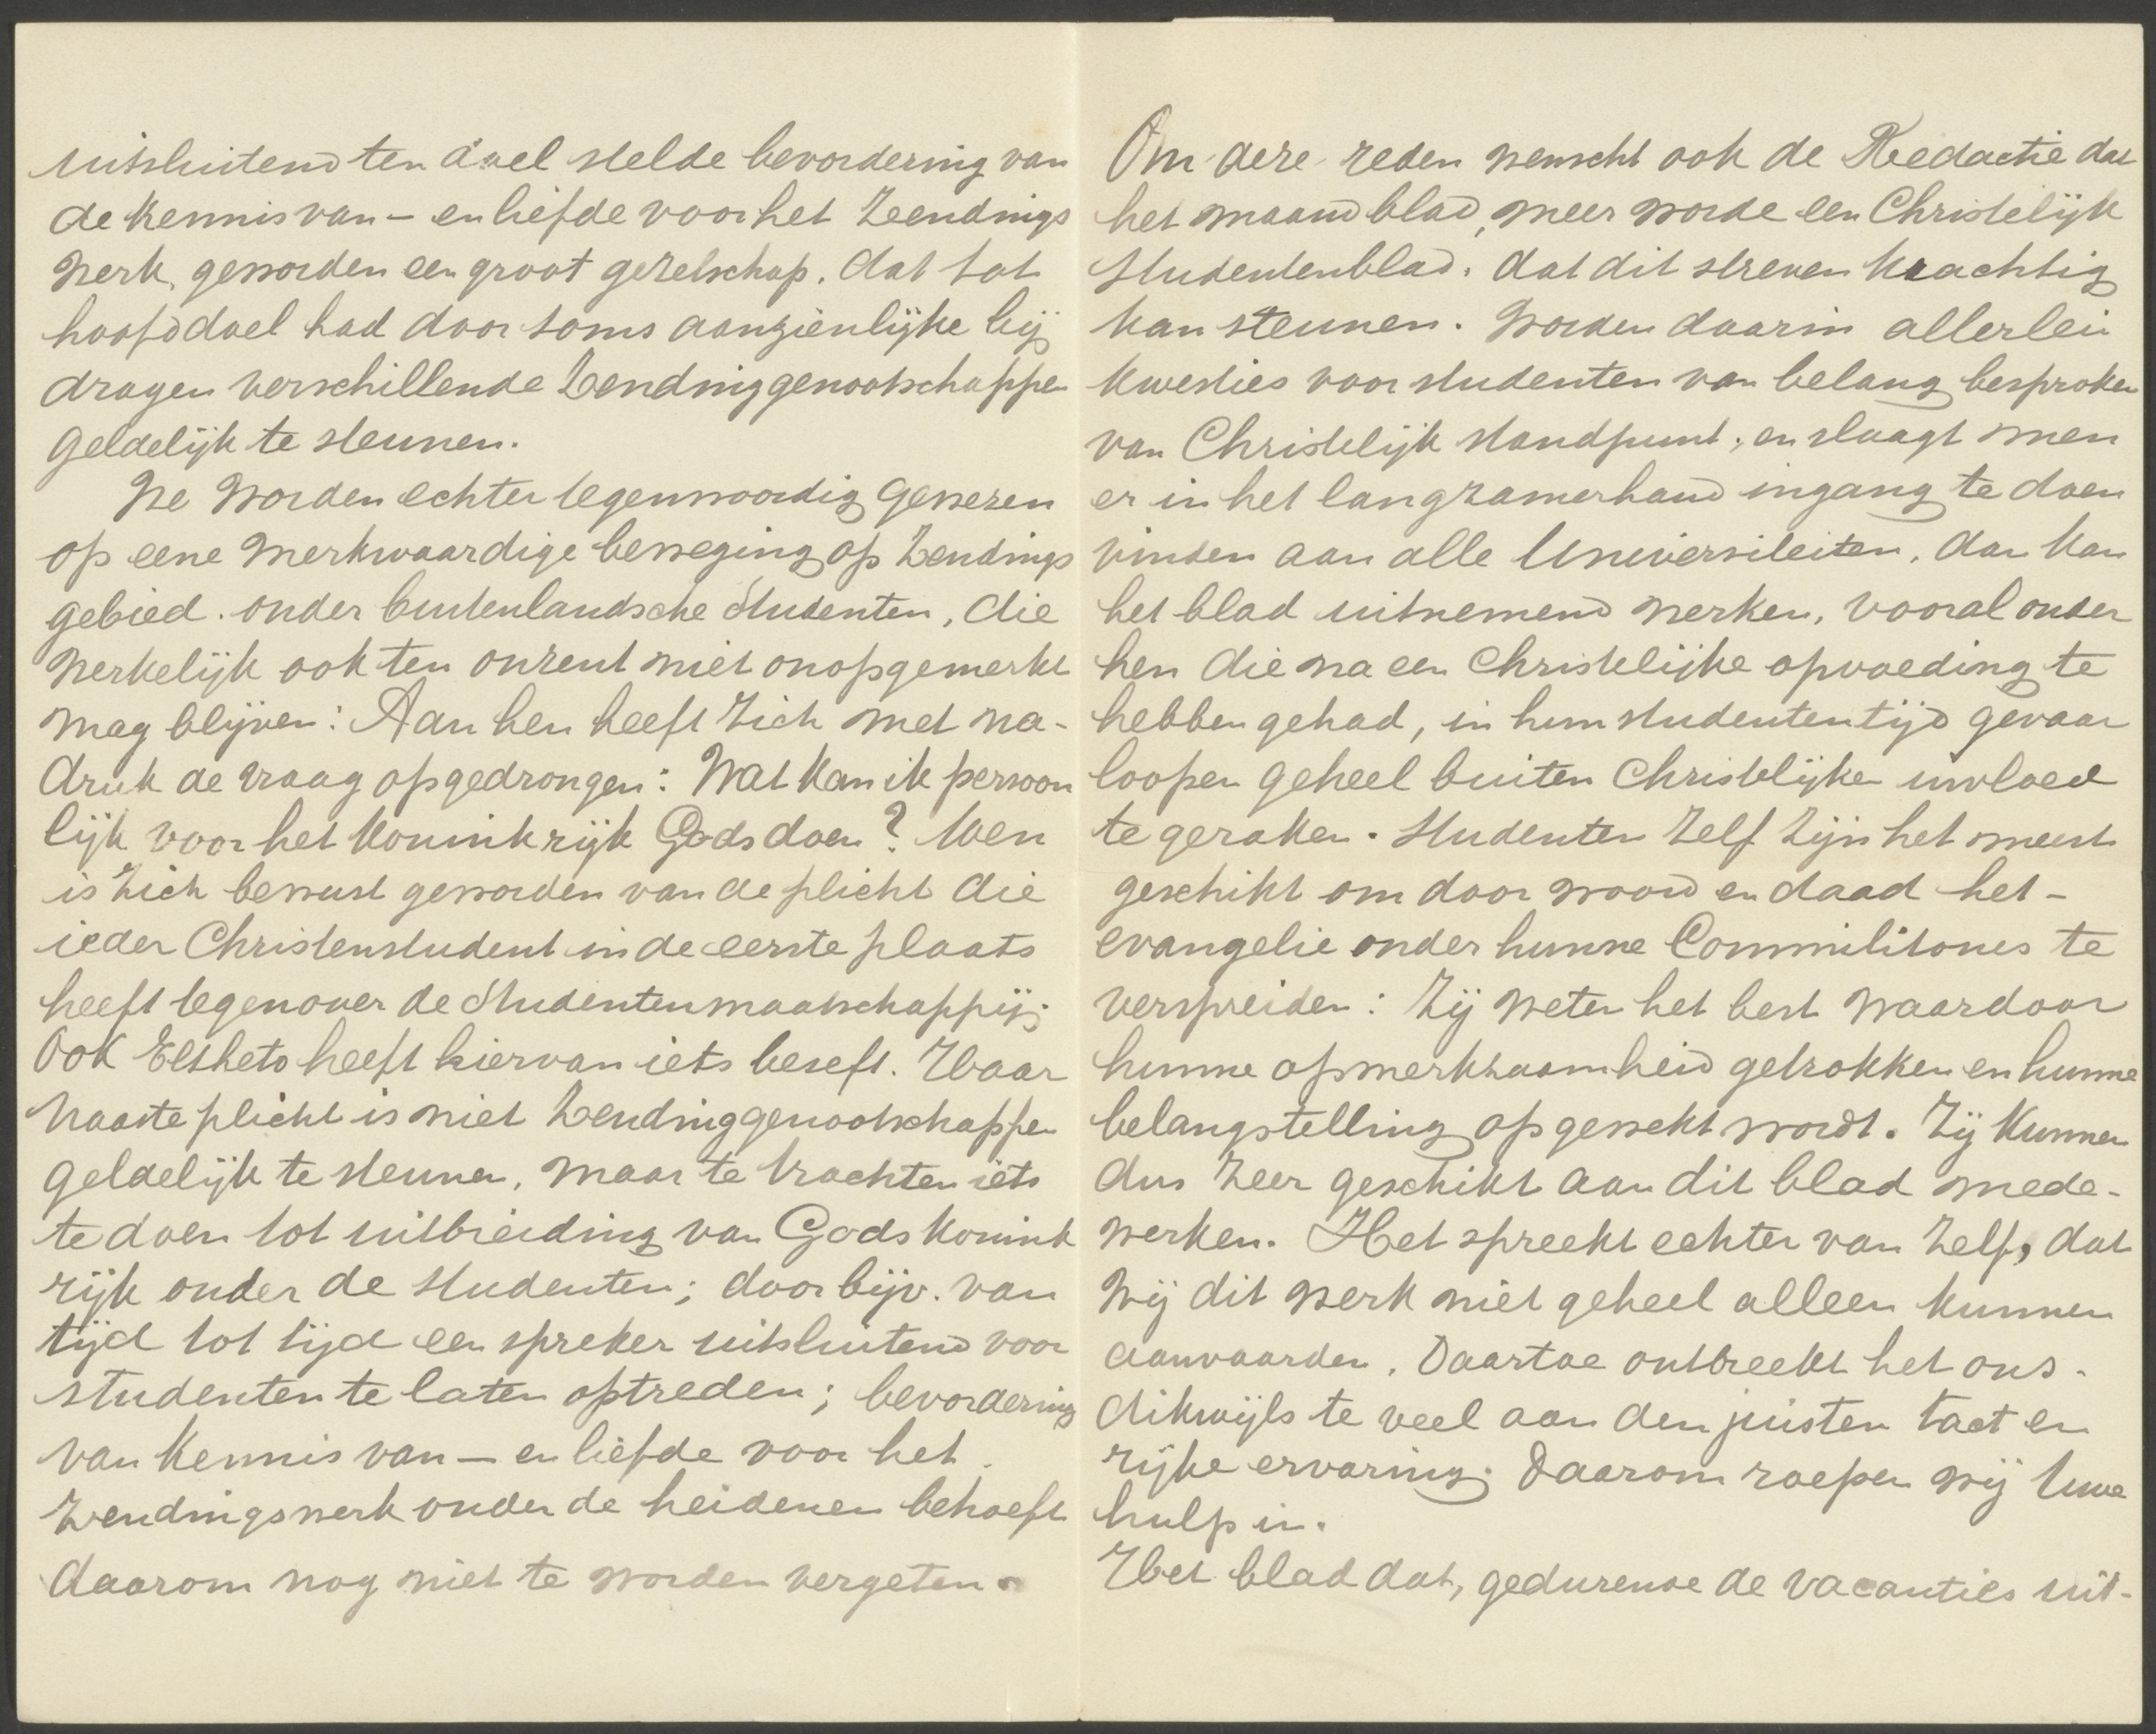 uitsluitend ten doel stelde bevordering van
de kennis van – en liefde voor het Zendings
werk, geworden een groot gezelschap, dat tot
hoofddoel had door soms aanzienlijke bij
dragen verschillende Zendinggenootschappen
geldelijk te steunen.
We worden echter tegenwoordig gewezen
op eene merkwaardige beweging op Zendings
gebied. onder buitenlandsche Studenten, die
werkelijk ook ten onzent niet onopgemerkt
mag blijven: Aan hen heeft zich met na-
druk de vraag opgedrongen: Wat kan ik persoon
lijk voor het Koninkrijk Gods doen? Men
is zich bewust geworden van de plicht die
ieder Christenstudent in de eerste plaats
heeft tegenover de Studentenmaatschappij;
Ook Eltheto heeft hiervan iets beseft. Haar
naaste plicht is niet Zendinggenootschappen
geldelijk te steunen, maar te trachten iets
te doen tot uitbreiding van Gods Konink
rijk onder de studenten; door bijv. van
tijd tot tijd een spreker uitsluitend voor
studenten te laten optreden; bevordering
van kennis van – en liefde voor het
Zendingswerk onder de heidenen behoeft
daarom nog niet te worden vergeten.
Om deze reden wenscht ook de Redactie dat
het maandblad, meer worde een Christelijk
Studentenblad, dat dit streven krachtig
kan steunen. Worden daarin allerlei
kwesties voor studenten van belang besproken
van Christelijk standpunt, en slaagt men
er in het langzamerhand ingang te doen
vinden aan alle Universiteiten, dan kan
het blad uitnemend werken, vooral onder
hen die na een Christelijke opvoeding te
hebben gehad, in hun studententijd gevaar
loopen geheel buiten Christelijken invloed
te geraken. Studenten zelf zijn het meest
geschikt om door woord en daad het –
evangelie onder hunne Commilitones te
verspreiden: Zij weten het best waardoor
hunne opmerkzaamheid getrokken en hunne
belangstelling opgewekt wordt. Zij kunnen
dus zeer geschikt aan dit blad mede-
werken. Het spreekt echter van zelf, dat
wij dit werk niet geheel alleen kunnen
aanvaarden. Daartoe ontbreekt het ons
dikwijls te veel aan den juisten tact en
rijke ervaring. Daarom roepen wij Uwe
hulp in.
Het blad dat, gedurende de vacanties uit-